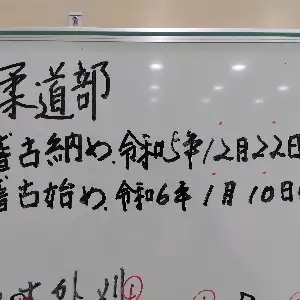 柔道部
稽古納め.令和5年12月22日
稽古始め.令和6年1月10日
外刈①